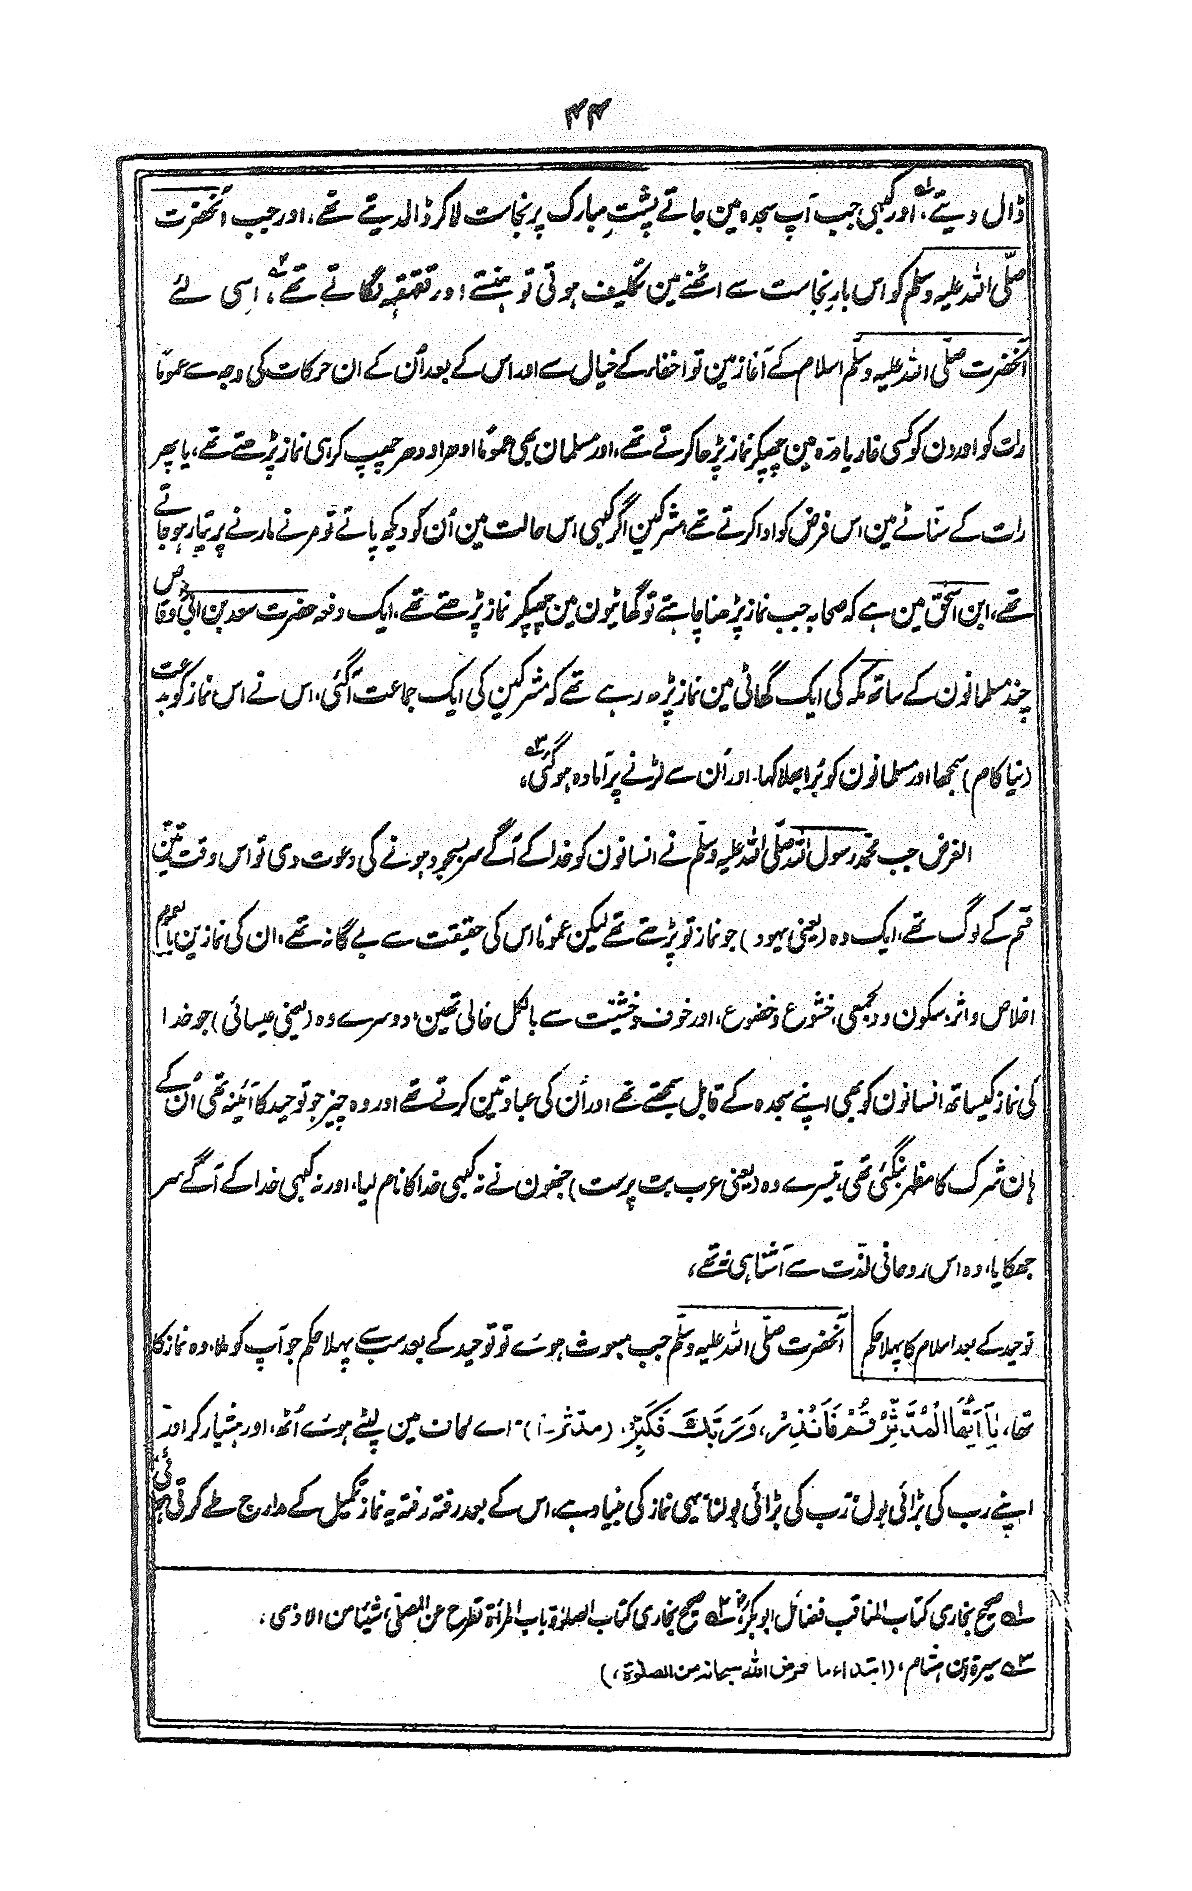 ۴۴
ڈال دیتے، اور کبھی جب آپ سجدہ مین جاتے پشتِ مبارک پر نجاست لا کر ڈالدیتے تھے، اور جب آنحضرت
صلّی اللہ علیہ وسلم کو اس بارِ نجاست سے اٹھنے مین تکلیف ہوتی تو ہنستے اور قہقہہ لگاتے تھے، اِسی لئے
آنحضرت صلّی اللہ علیہ وسلّم اسلام کے آغاز مین تو اخفاء کے خیال سے اور اس کے بعد اُن کے ان حرکات کی وجہ سے عموماً
رات کو اور دن کو کسی غار یا درّہ مین چھپکر نماز پڑھا کرتے تھے، اور مسلمان بھی عموماً اِدھر اودھر چھپ کر ہی نماز پڑھتے تھے، یا پھر
رات کے سنّاٹے مین اس فرض کو ادا کرتے تھے مشرکین اگر کبھی اس حالت مین اُن کو دیکھ پاتے تو مرنے مارنے پر تیّار ہو جاتے
تھے، ابن اسحٰق مین ہے کہ صحابہ جب نماز پڑھنا چاہتے تو گھاٹیون مین چھپکر نماز پڑھتے تھے، ایک دفعہ حضرت سعد بن ابی وقاص
چند مسلمانون کے ساتھ مکہ کی ایک گھاٹی مین نماز پڑھ رہے تھے کہ مشرکین کی ایک جماعت آگئی، اس نے اس نماز کو بدعت
(نیا کام) سمجھا اور مسلمانون کو بُرا بھلا کہا۔ اور اُن سے لڑنے پر آمادہ ہو گئی،
الغرض جب محمد رسول اللہ صلّی اللہ علیہ وسلّم نے انسانون کو خدا کے آگے سربسجود ہونے کی دعوت دی تو اس وقت تین
قسم کے لوگ تھے، ایک وہ (یعنی یہود) جو نماز تو پڑھتے تھے لیکن عموماً اس کی حقیقت سے بے گانہ تھے، ان کی نمازین بالعموم
اخلاص و اثر، سکون و دلجمعی، خشوع و خضوع، اور خوف و خشیت سے بالکل خالی تھین، دوسرے وہ (یعنی عیسائی) جو خدا
کی نماز کیساتھ انسانون کو بھی اپنے سجدہ کے قابل سمجھتے تھے اور اُن کی عبادتین کرتے تھے اور وہ چیز جو توحید کا آئینہ تھی اُن کے
ہان شرک کا مظہر بنگئی تھی، تیسرے وہ (یعنی عرب بت پرست) جنھون نے نہ کبھی خدا کا نام لیا، اور نہ کبھی خدا کے آگے سر
جھکایا، وہ اس روحانی لذت سے آشنا ہی نہ تھے،
توحید کے بعد اسلام کا پہلا حکم
آنحضرت صلّی اللہ علیہ وسلّم جب مبعوث ہوئے تو توحید کے بعد سب سے پہلا حکم جو آپ کو ملا، وہ نماز کا
تھا، یٰاَ اَیُّهَا الْمُدَّثِّرُ قُمْ فَاَنْذِرْ، وَرَبَّكَ فَكَبِّرْ، (مدّثر-۱)- اے لحاف مین لپٹے ہوئے اُٹھ، اور ہشیار کر اور
اپنے رب کی بڑائی بول ‘‘رب کی بڑائی بولنا یہی نماز کی بنیاد ہے، اس کے بعد رفتہ رفتہ یہ نماز تکمیل کے مدارج طے کرتی
لہ صحیح بخاری کتاب المناقب فضائل ابوبکرؓ ۲ہ صحیح بخاری کتاب الصلوٰۃ باب المرأۃ تطرح عن المصلّی شیئا من الاذیٰ،
۳ہ سیرۃ ابن ہشام، (ابتداء ما فرض اللہ سبحانہ من الصلوٰۃ،)